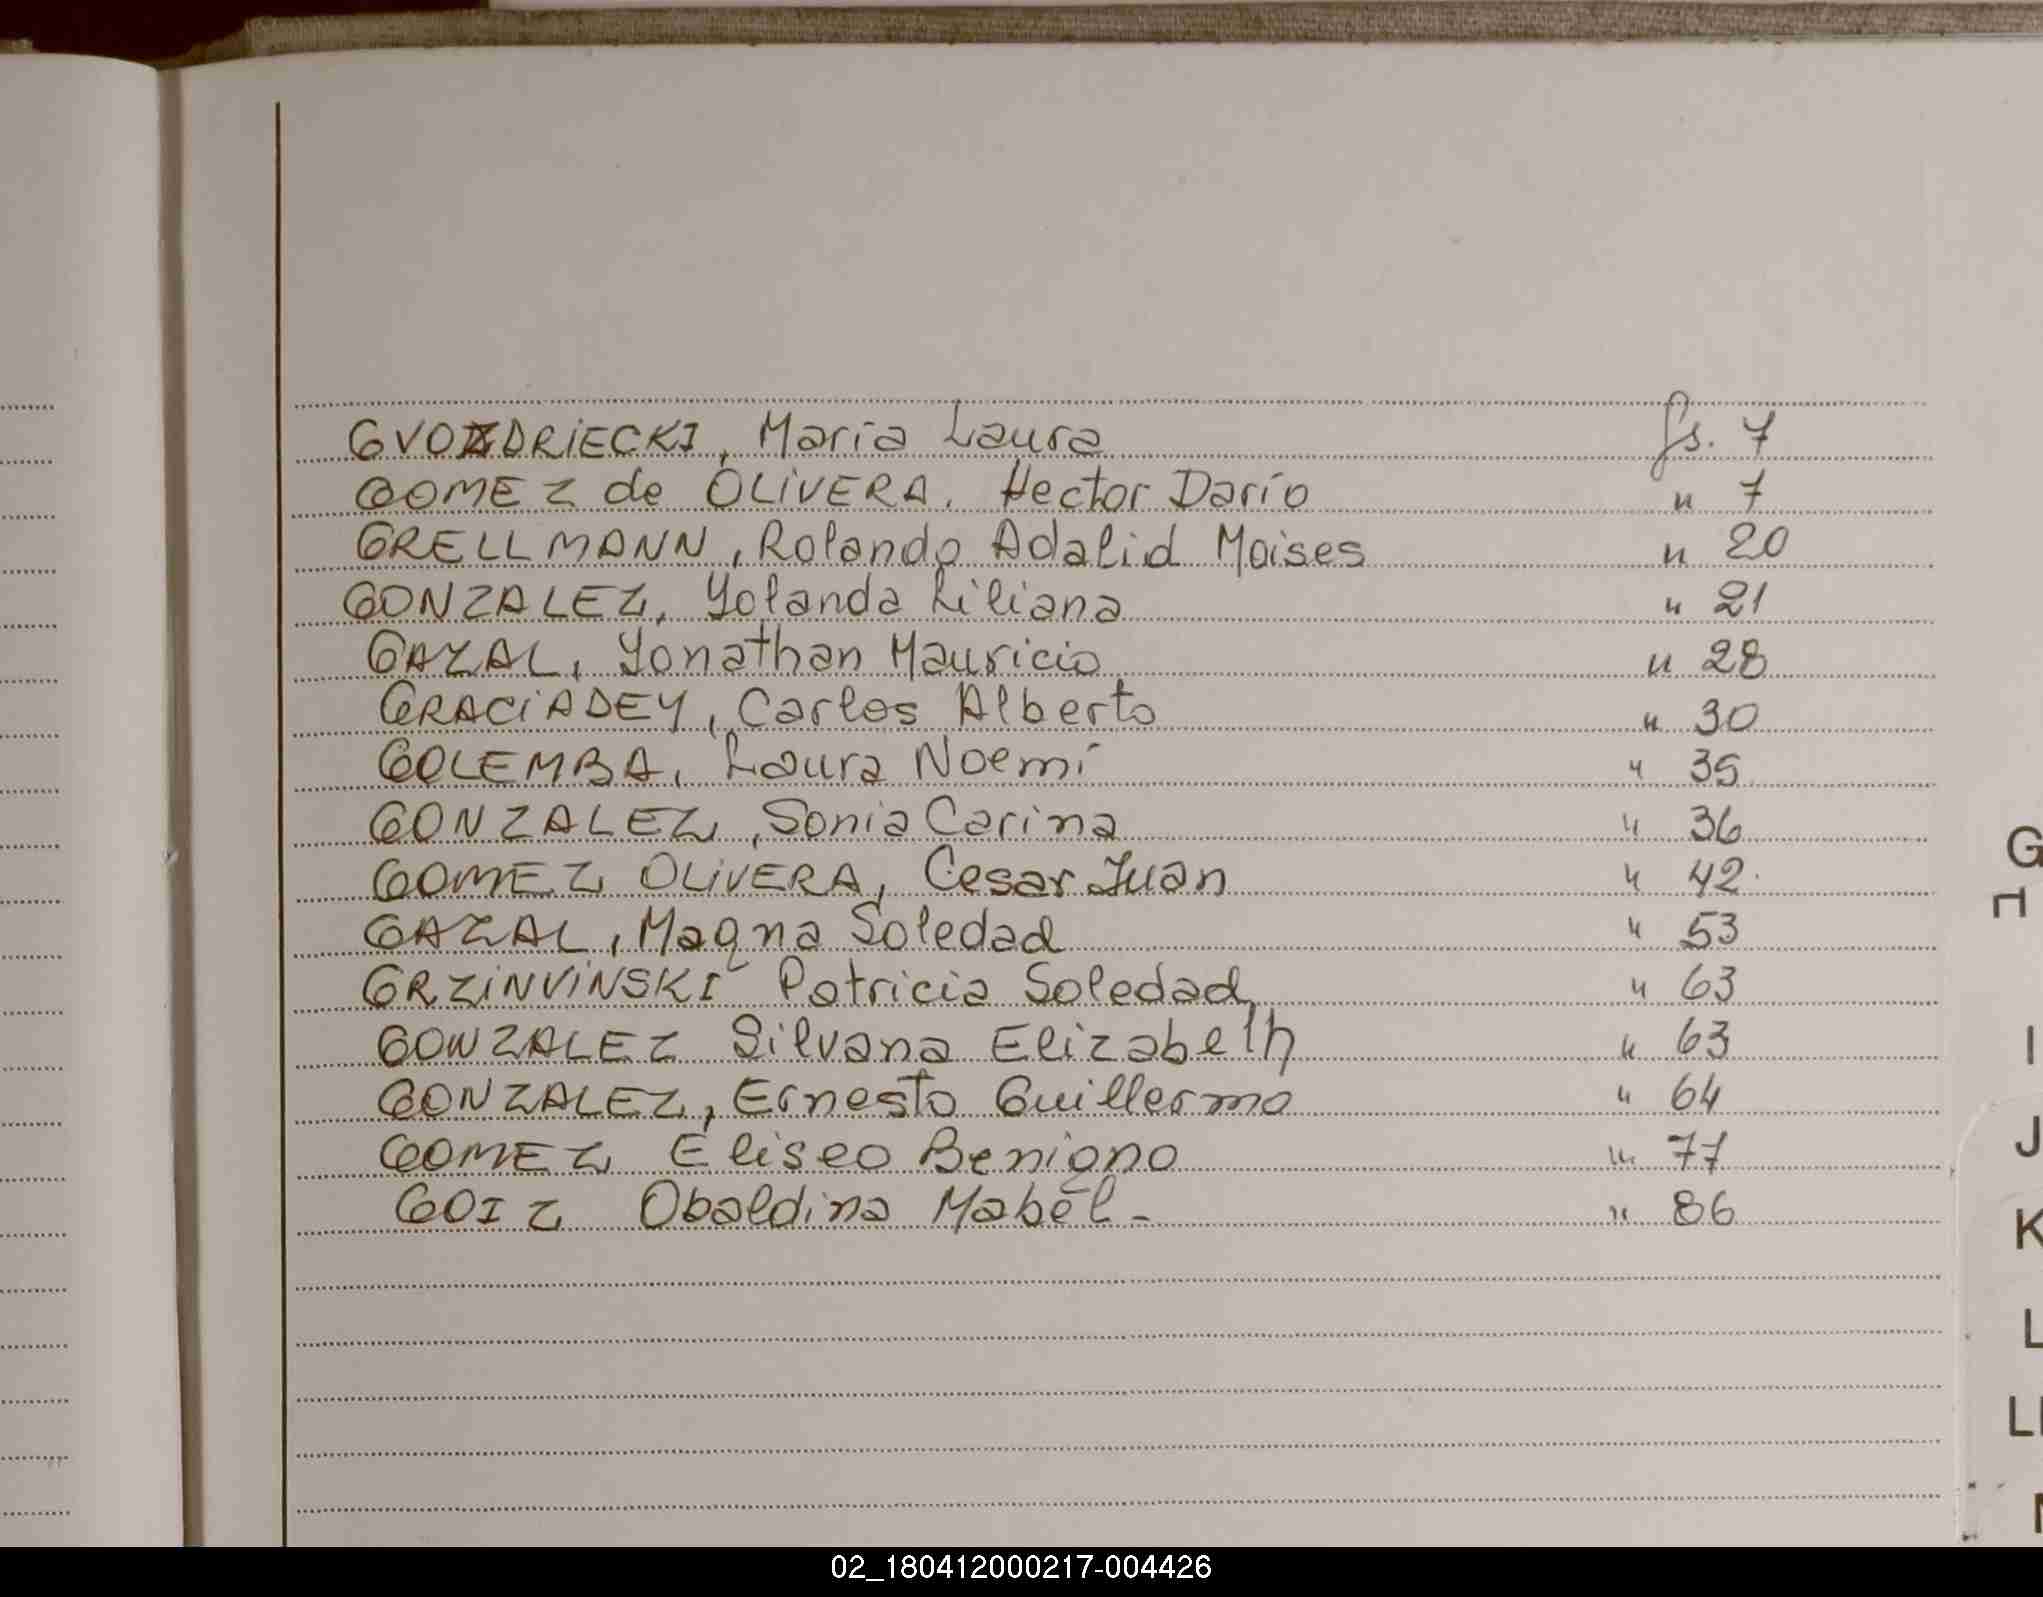 GVOZDRIECKI, María Laura fs. 7
GOMEZ de OLIVERA, Hector Darío " 7
GRELLMANN, Rolando Adalid Moises " 20
GONZALEZ, Yolanda Liliana " 21
GAZAL, Yonathan Mauricio " 28
GRACIADEY, Carlos Alberto " 30
GOLEMBA, Laura Noemí " 35
GONZALEZ, Sonia Carina " 36
GOMEZ OLIVERA, Cesar Juan " 42
GAZAL, Magna Soledad " 53
GRZINVINSKI Patricia Soledad " 63
GONZALEZ Silvana Elizabeth " 63
GONZALEZ, Ernesto Guillermo " 64
GOMEZ Eliseo Benigno " 77
GOIZ Obaldina Mabel - " 86
G
I
J
K
L
LL
02_180412000217-004426